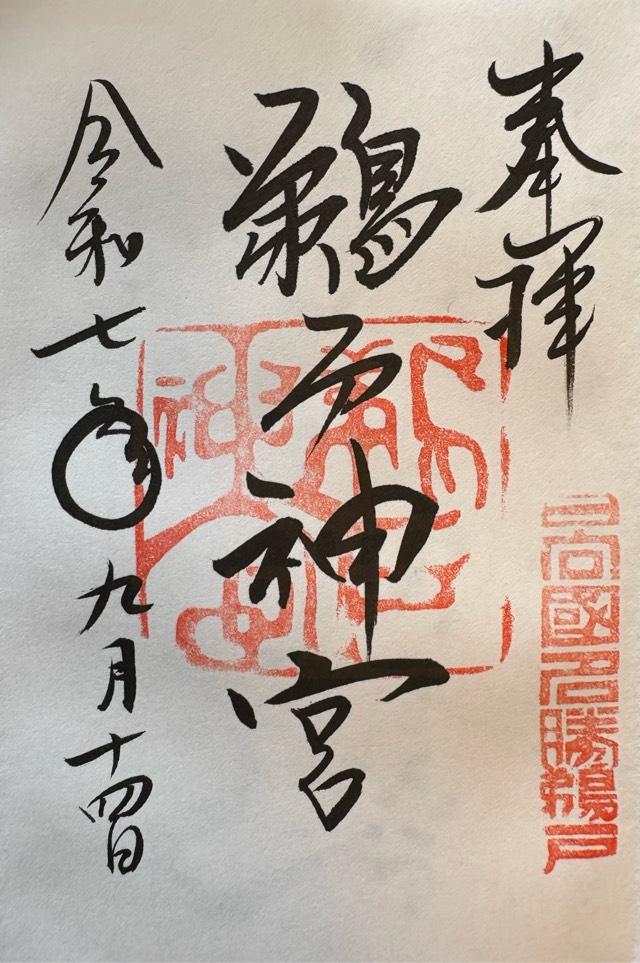 奉拝
鵜戸神宮
令和七年九月十四日
日向國名勝鵜戸